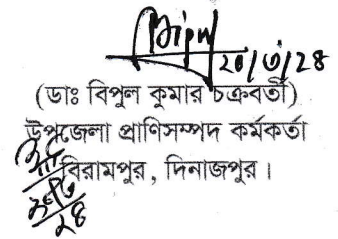 ২০/৩/২৪
(ডাঃ বিপুল কুমার চক্রবর্তী)
উপজেলা প্রাণিসম্পদ কর্মকর্তা
বিরামপুর, দিনাজপুর।